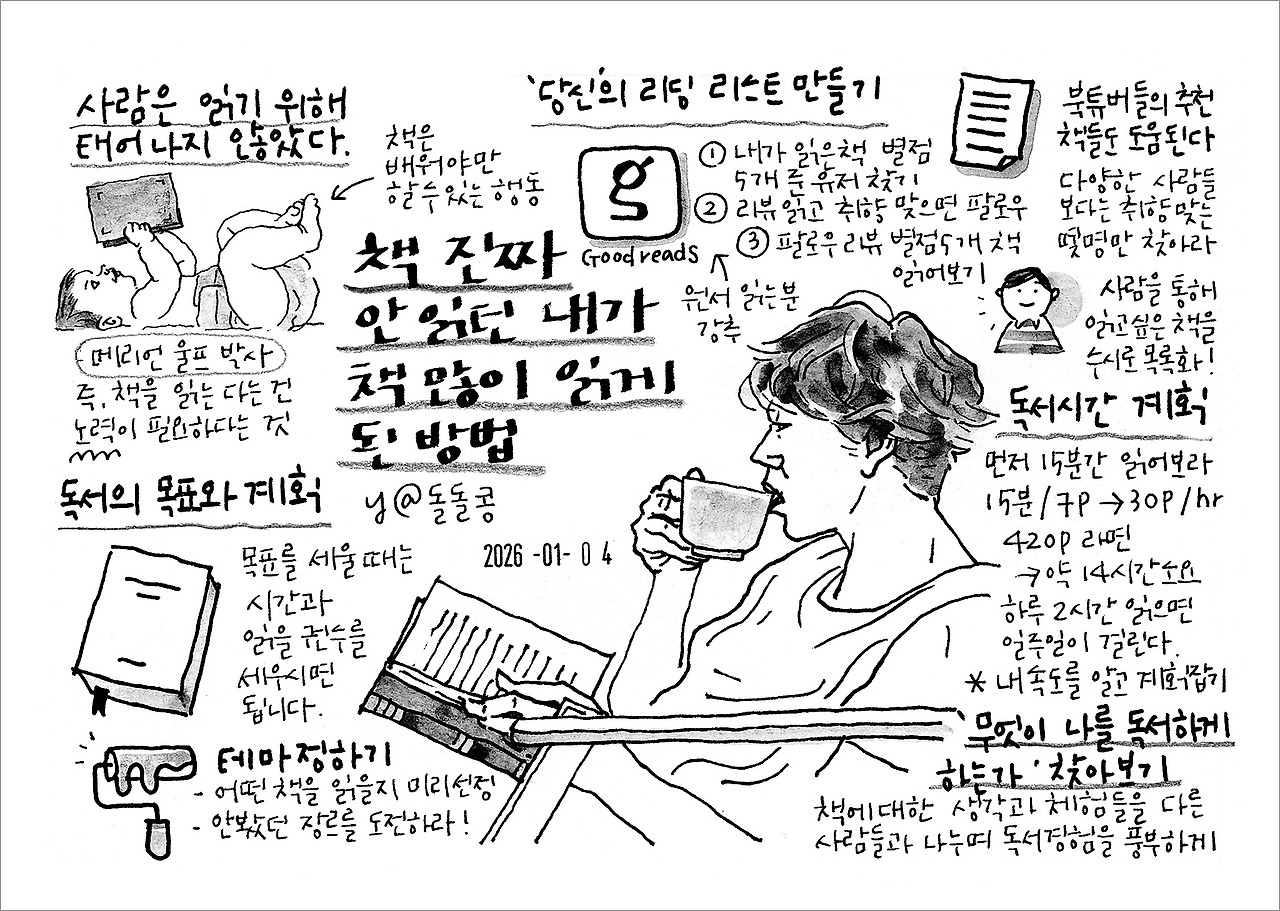 사람은 읽기 위해
태어나지 않았다.
책은
배워야만
할 수 있는 행동
메리언 울프 박사
즉, 책을 읽는 다는 건
노력이 필요하다는 것
책 진짜
안 읽던 내가
책 많이 읽게
된 방법
y@돌돌콩
2026-01-04
'당신'의 리딩 리스트 만들기
g
Goodreads
① 내가 읽은책 별점
5개 준 유저 찾기
② 리뷰읽고 취향 맞으면 팔로우
③ 팔로우 리뷰 별점5개 책
읽어보기
원서 읽는분
강추
북튜버들의 추천
책들도 도움된다
다양한 사람들
보다는 취향 맞는
몇명만 찾아라
사람을 통해
읽고싶은 책을
수시로 목록화!
독서의 목표와 계획
목표를 세울 때는
시간과
읽을 권수를
세우시면
됩니다.
테마 정하기
- 어떤 책을 읽을지 미리선정
- 안봤던 장르를 도전하라!
독서시간 계획
먼저 15분간 읽어보라
15분/7P →30P/hr
420P 라면
→약 14시간소요
하루 2시간 읽으면
일주일이 걸린다.
* 내 속도를 알고 계획잡기
'무엇이 나를 독서하게
하는가' 찾아보기
책에 대한 생각과 체험들을 다른
사람들과 나누며 독서경험을 풍부하게